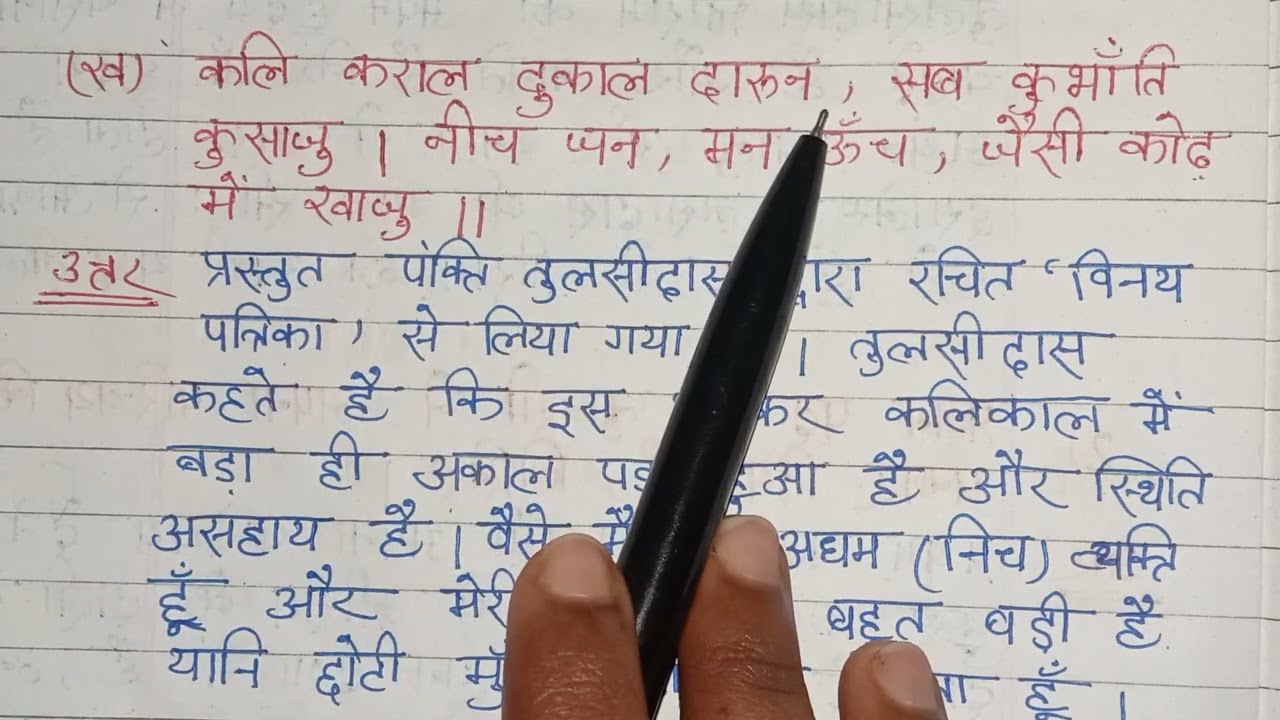 (ख) कलि कराल दुकाल दारुन, सब कुभाँति
कुसाजु । नीच जन, मन ऊँच, जैसी कोढ़
में खाजु ॥
उत्तर प्रस्तुत पंक्ति तुलसीदास द्वारा रचित 'विनय
पत्रिका' से लिया गया । तुलसीदास
कहते है कि इस कलिकाल में
बड़ा ही अकाल पड़ा हुआ है और स्थिति
असहाय है । वैसे अधम (निच) व्यक्ति
हूँ और मेरी बहुत बड़ी है
यानि छोटी हूँ ।